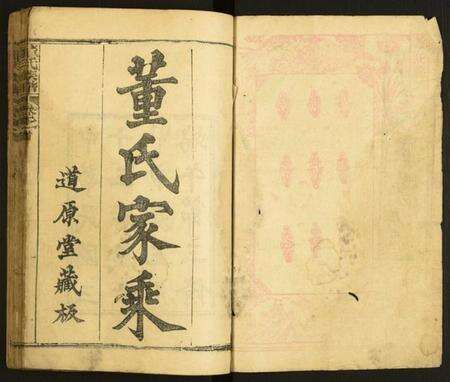 董氏家乘
道原堂藏板